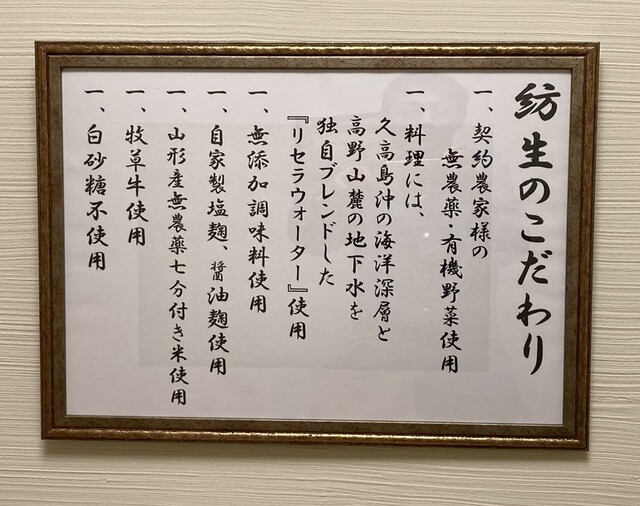 紡生のこだわり
一、契約農家様の
無農薬・有機野菜使用
一、料理には、
久高島沖の海洋深層と
高野山麓の地下水を
独自ブレンドした
『リセラウォーター』使用
一、無添加調味料使用
一、自家製塩麹、醤油麹使用
一、山形産無農薬七分付き米使用
一、牧草牛使用
一、白砂糖不使用